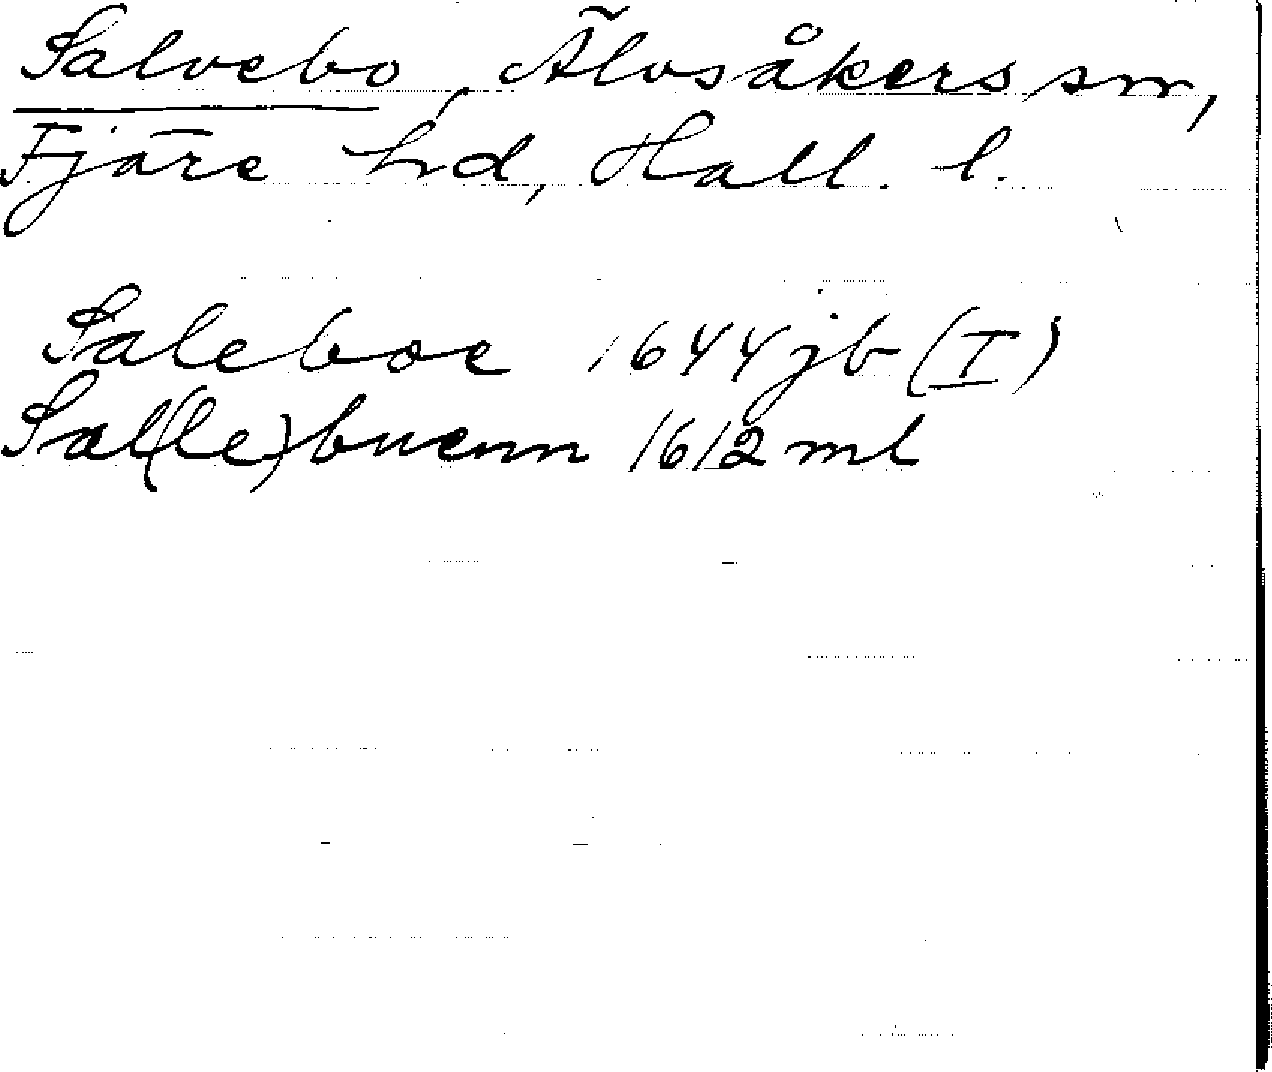 Salvebo, Älvsåkers sn,
Fjäre hd, Hall. l.
Saleboe 1644 jb (I)
Sal(le)buenn 1612 ml